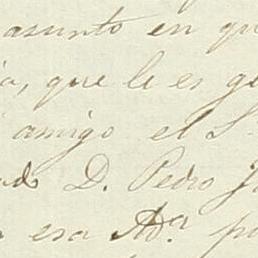 asunto en qu
a, que le es ge
amigo el S.
ado D. Pedro J
esa Ad.ª po